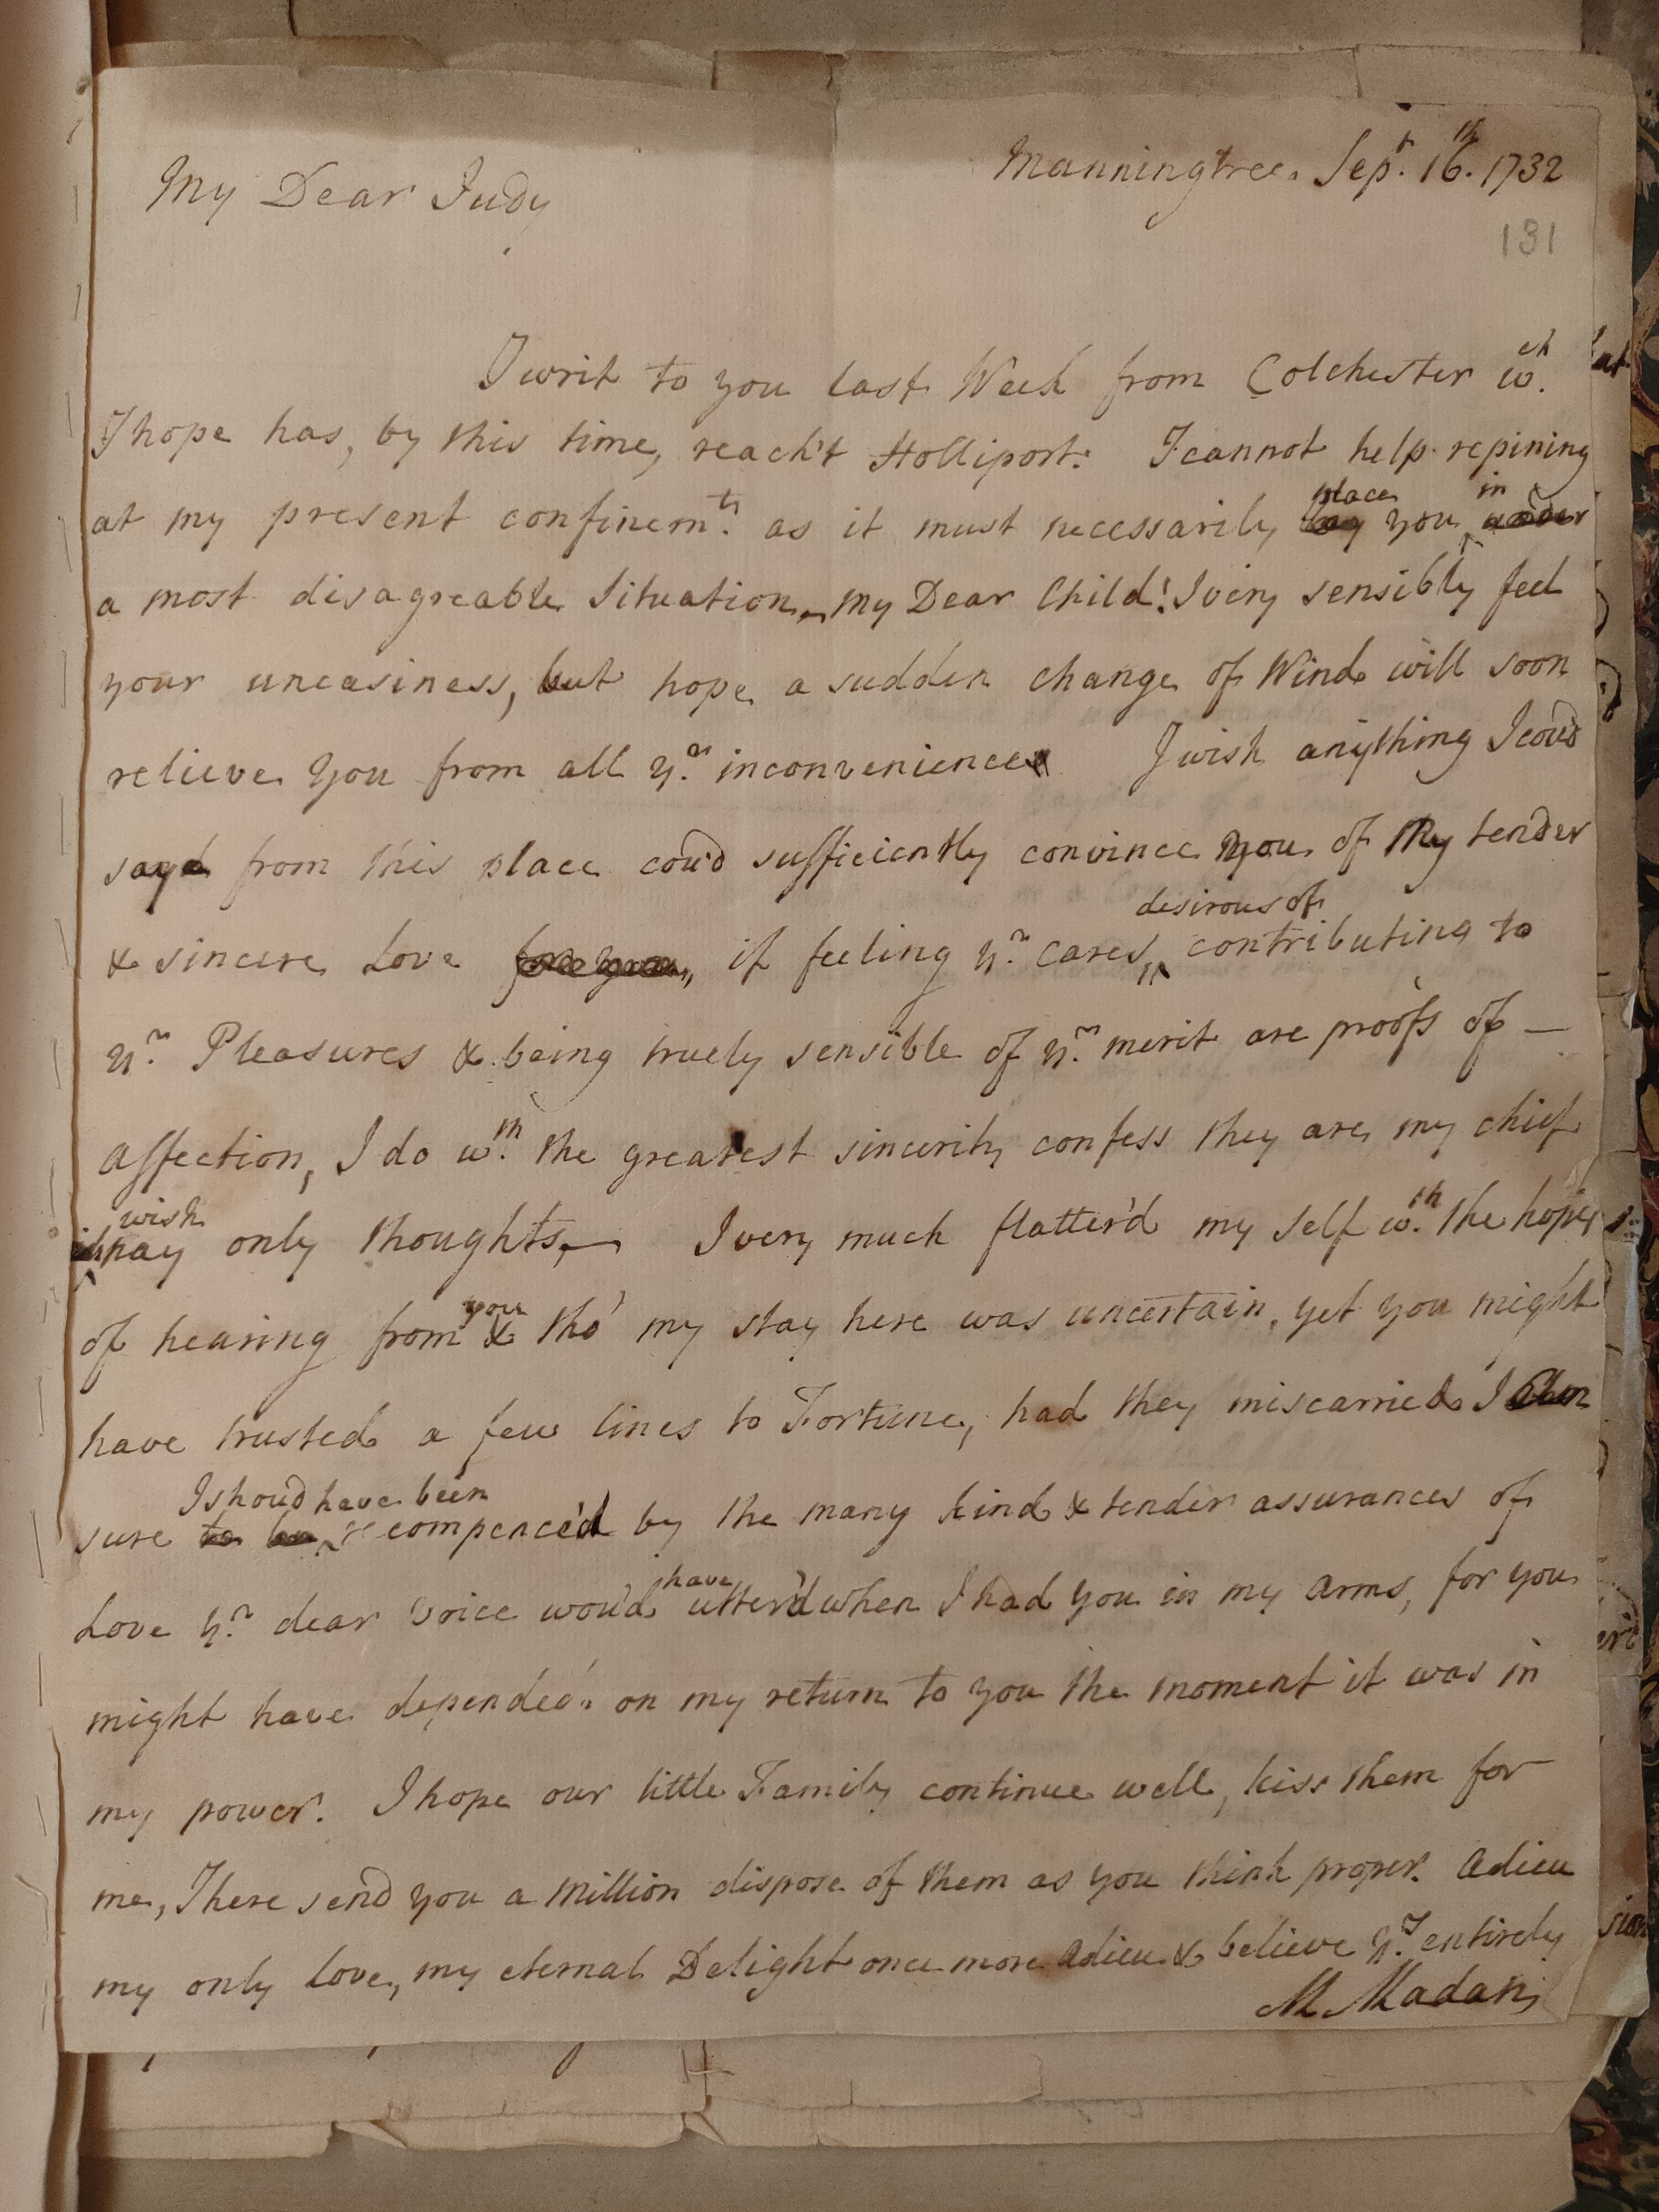 Manningtree. Sepr. 16th. 1732
My Dear Judy
131
I writ to you last Week from Colchester wch.
I hope has, by this time, reach't Holliport: I cannot help repining
at my present confinemt. as it must necessarily lay place you under in
a most disagreable Situation, my Dear Child! I very sensibly feel
your uneasiness, but hope a sudden change of Wind will soon
relieve you from all yr. inconvenience I wish anything I cou'd
say from this place cou'd sufficiently convince you of my tender
& sincere Love for you, if feeling yr. cares, desirous of contributing to
yr. Pleasures & being truely sensible of yr. merit are proofs of —
affection, I do wth. the greatest sincerity confess they are my chief
wish nay only thoughts, — I very much flatter'd my self wth. the hopes
of hearing from you & tho' my stay here was uncertain, yet you might
have trusted a few lines to Fortune, had they miscarried I am
sure to be I shou'd have been recompence'd by the many kind & tender assurances of
Love yr. dear Voice wou'd have utter'd when I had you in my arms, for you
might have depended on my return to you the moment it was in
my power. I hope our little Family continue well, kiss them for
me, I here send you a million dispose of them as you think proper. Adieu
my only love, my eternal Delight once more adieu & believe yrs. entirely
M Madan